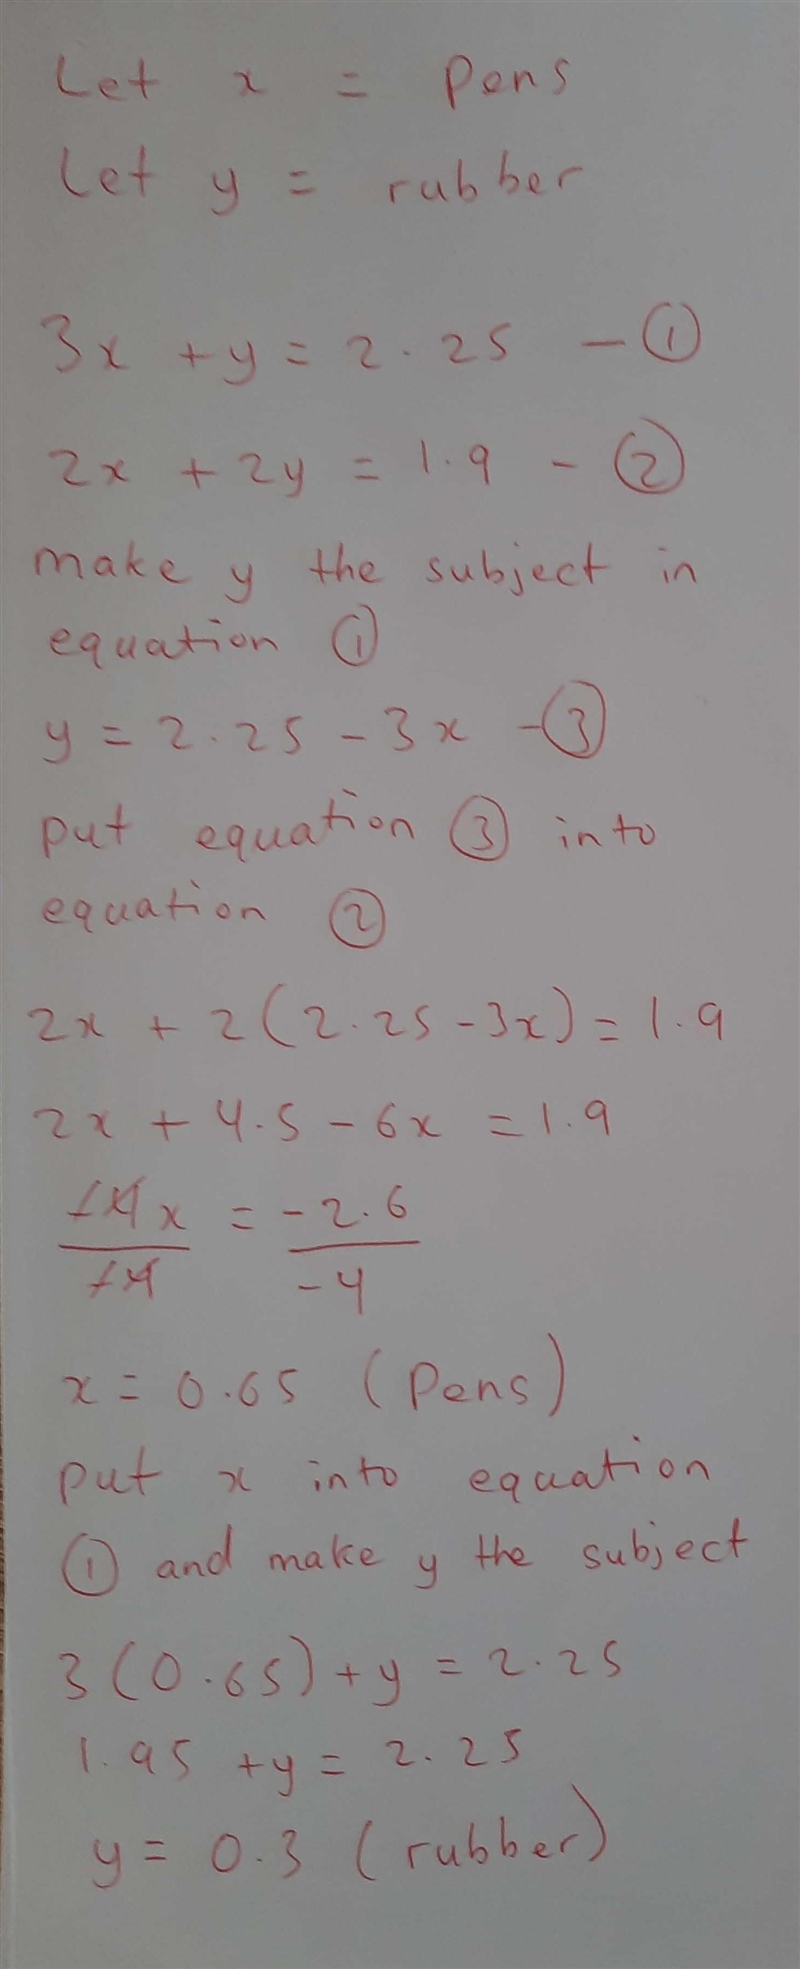 Let x = Pens
Let y = rubber
3x + y = 2.25 - ①
2x + 2y = 1.9 - ②
make y the subject in
equation ①
y = 2.25 - 3x - ③
put equation ③ into
equation ②
2x + 2(2.25 - 3x) = 1.9
2x + 4.5 - 6x = 1.9
-4x = -2.6
-4 -4
x = 0.65 (Pens)
put x into equation
① and make y the subject
3(0.65) + y = 2.25
1.95 + y = 2.25
y = 0.3 (rubber)